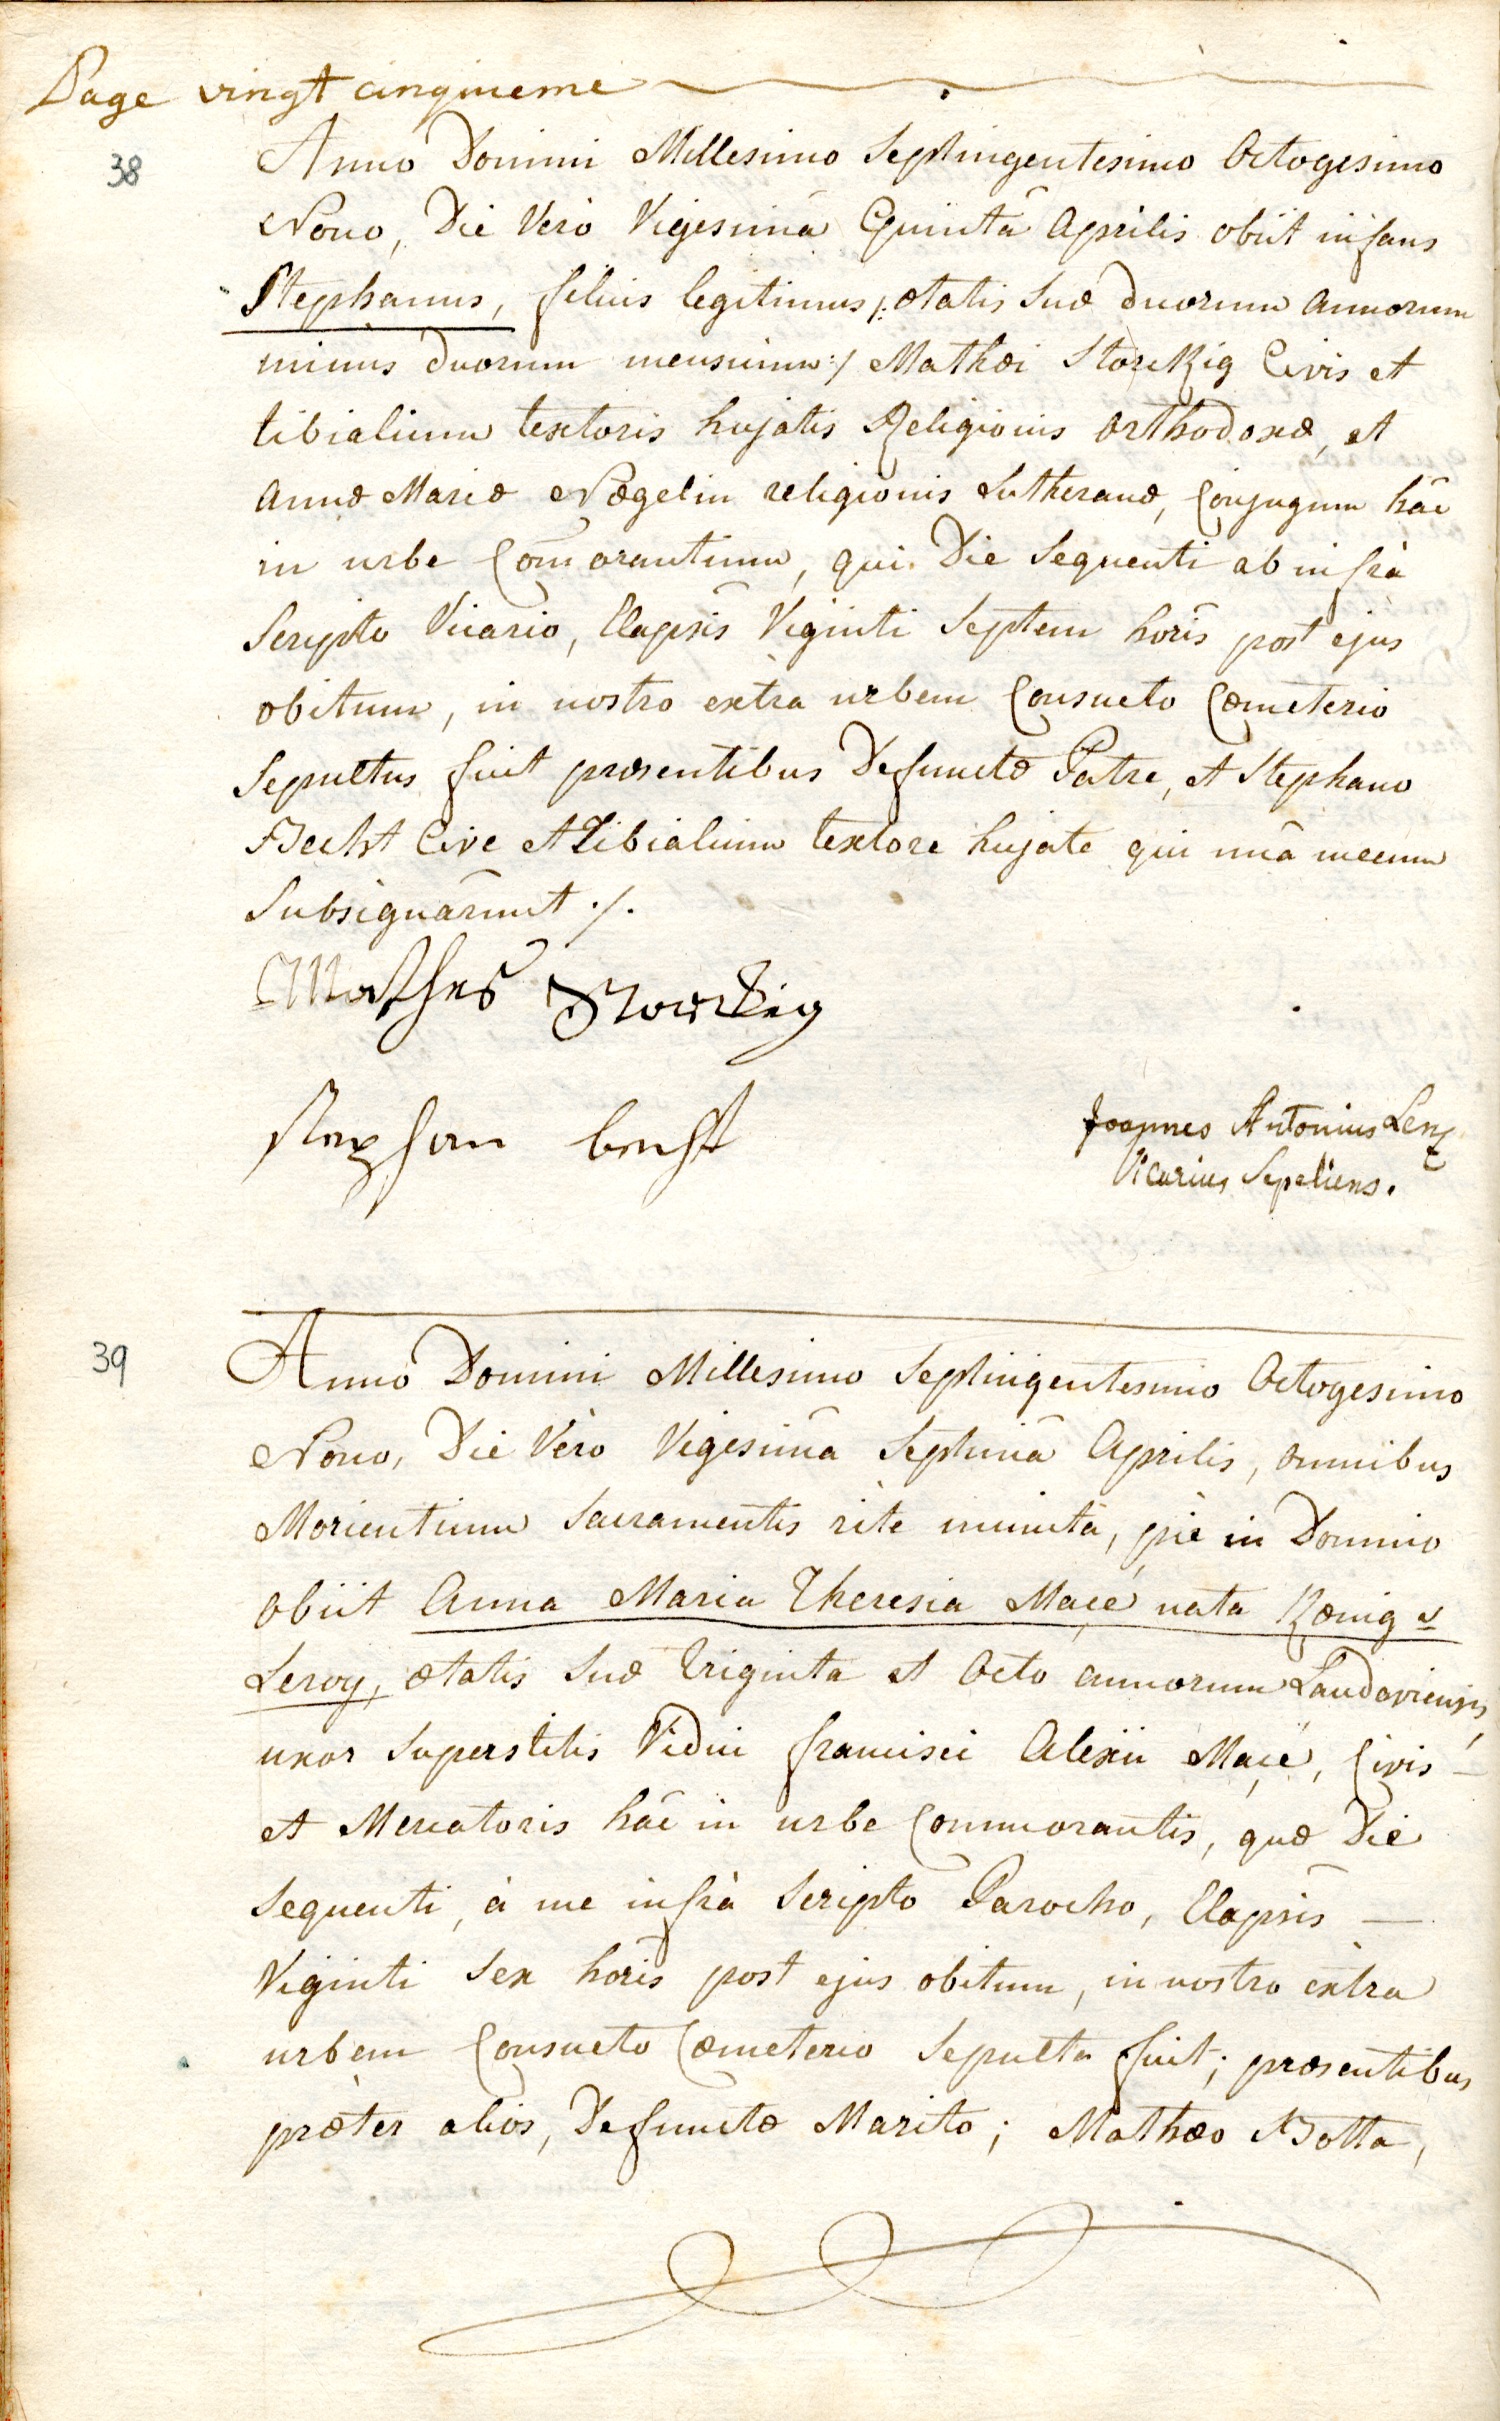 Page vingt cinqıieme
38
Anno Domini Millesimo Septingentesimo Octogesimo
Nono, Die Vero Vigesimâ Quintâ Aprilis obiit infans
Stephanus, filius legitimus /: ætatis suæ duorum annorum
minus duorum mensium :/ Mathæi Storckig Civis et
tibialium textoris hujatis Religionis Orthodoxæ, et
Annæ Mariæ Nægelin religionis Lutheranæ, Conjugum hâc
in urbe Com̄orantium, qui Die Sequenti ab infrà
Scripto Vicario, Elapsis Viginti Septem horis post ejus
obitum, in nostro extra urbem Consueto Cæmeterio
Sepultus fuit præsentibus Defuncti Patre, et Stephano
Becht Cive et Tibialium textore hujate qui unà mecum
Subsignârunt ./.
Mathes Storckig
Stephan becht
Joannes Antonius Lenz
Vicarius Sepeliens.
39
Anno Domini Millesimo Septingentesimo Octogesimo
Nono, Die Vero Vigesimâ Septimâ Aprilis, omnibus
Morientium Sacramentis rite munita, piè in Domino
obiit Anna Maria Theresia Macé nata Kœnig v
Leroy, ætatis suæ Triginta et Octo annorum Landaviensis,
uxor Superstitis Vidui francisci Alexii Macé, Civis —
et Mercatoris hâc in urbe Commorantis, quæ Die
Sequenti, à me infrà Scripto Parocho, Elapsis —
Viginti Sex horis post ejus obitum, in nostro extra
urbem Consueto Cæmeterio Sepulta fuit; præsentibus
præter alios, Defunctæ Marito; Mathæo Botta,